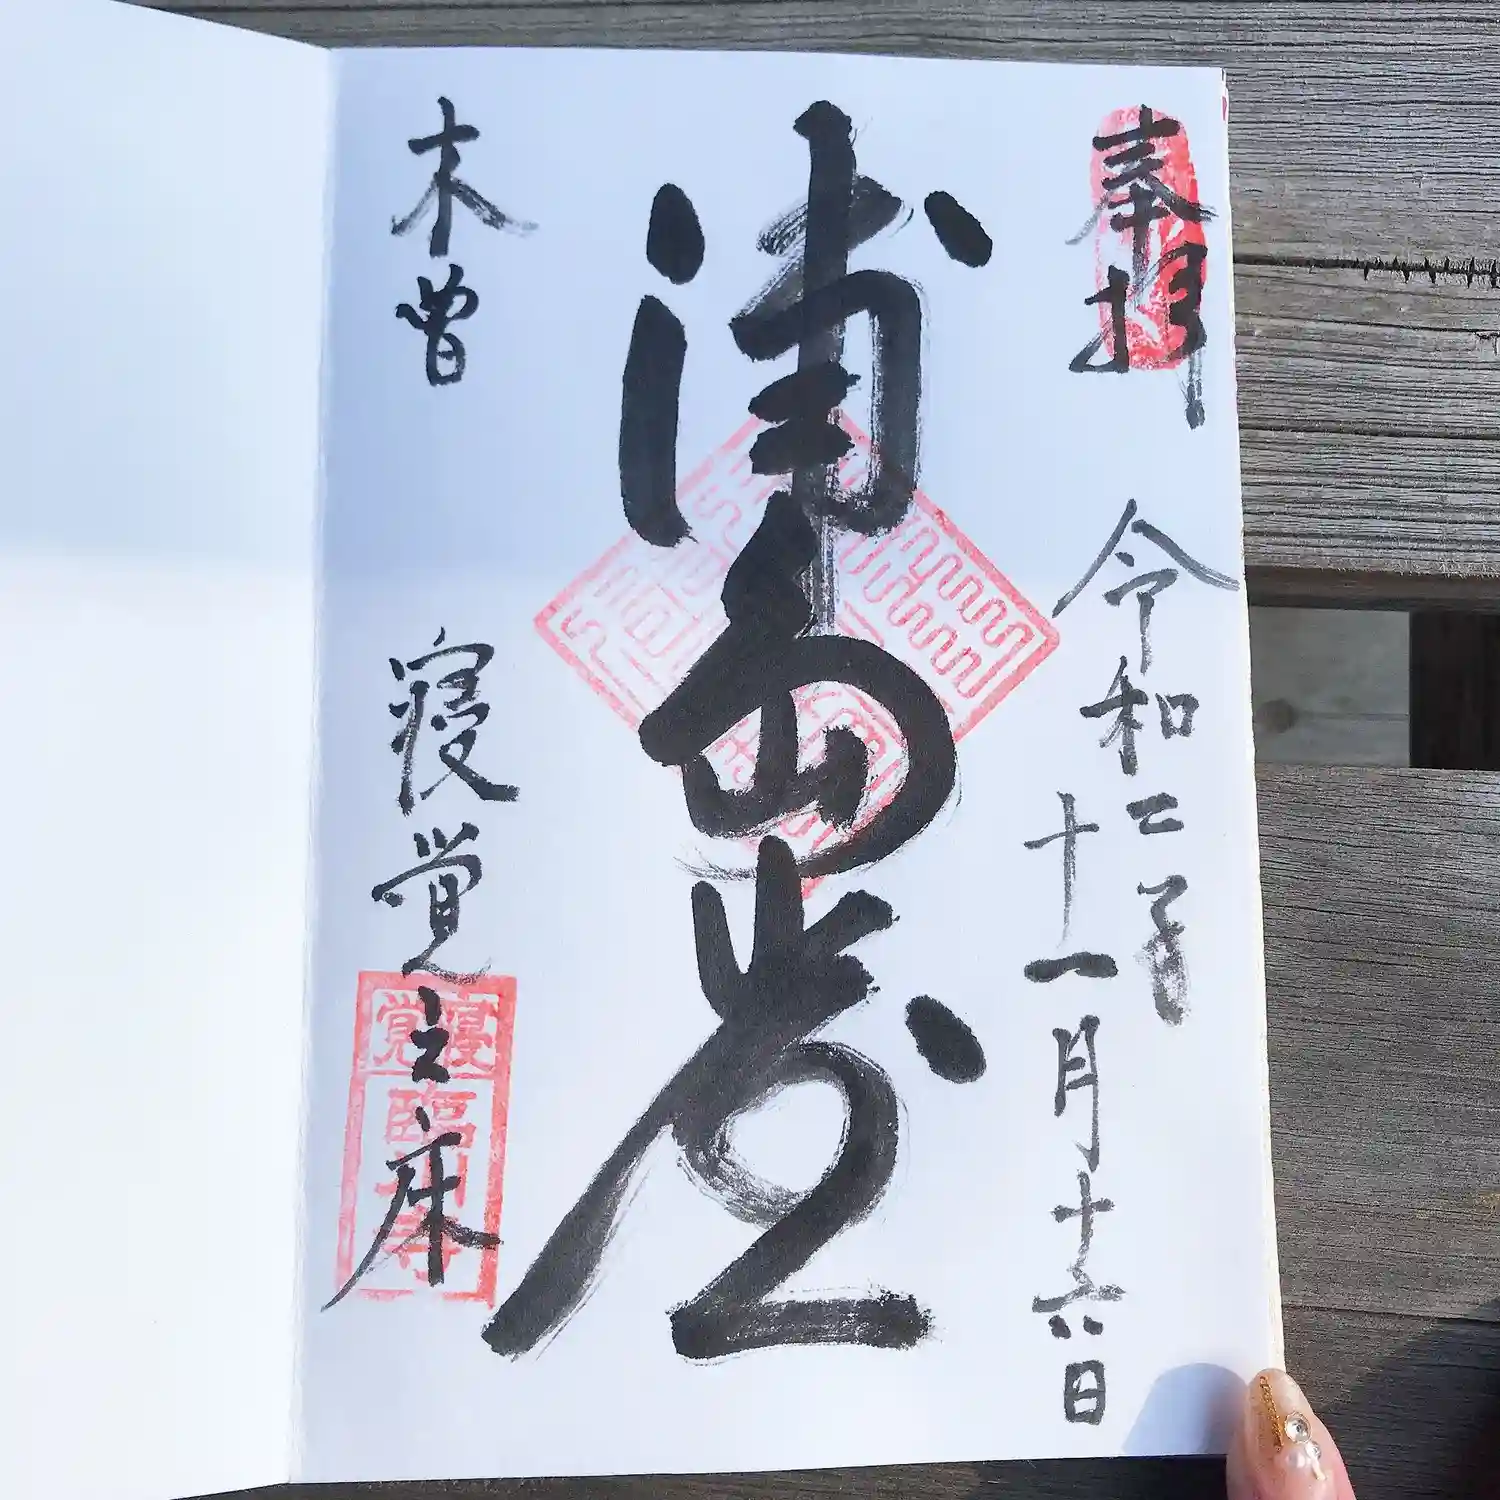 奉拝
令和二年
十一月十六日
浦島堂
木曽
寝覚之床
寝覚
臨川寺